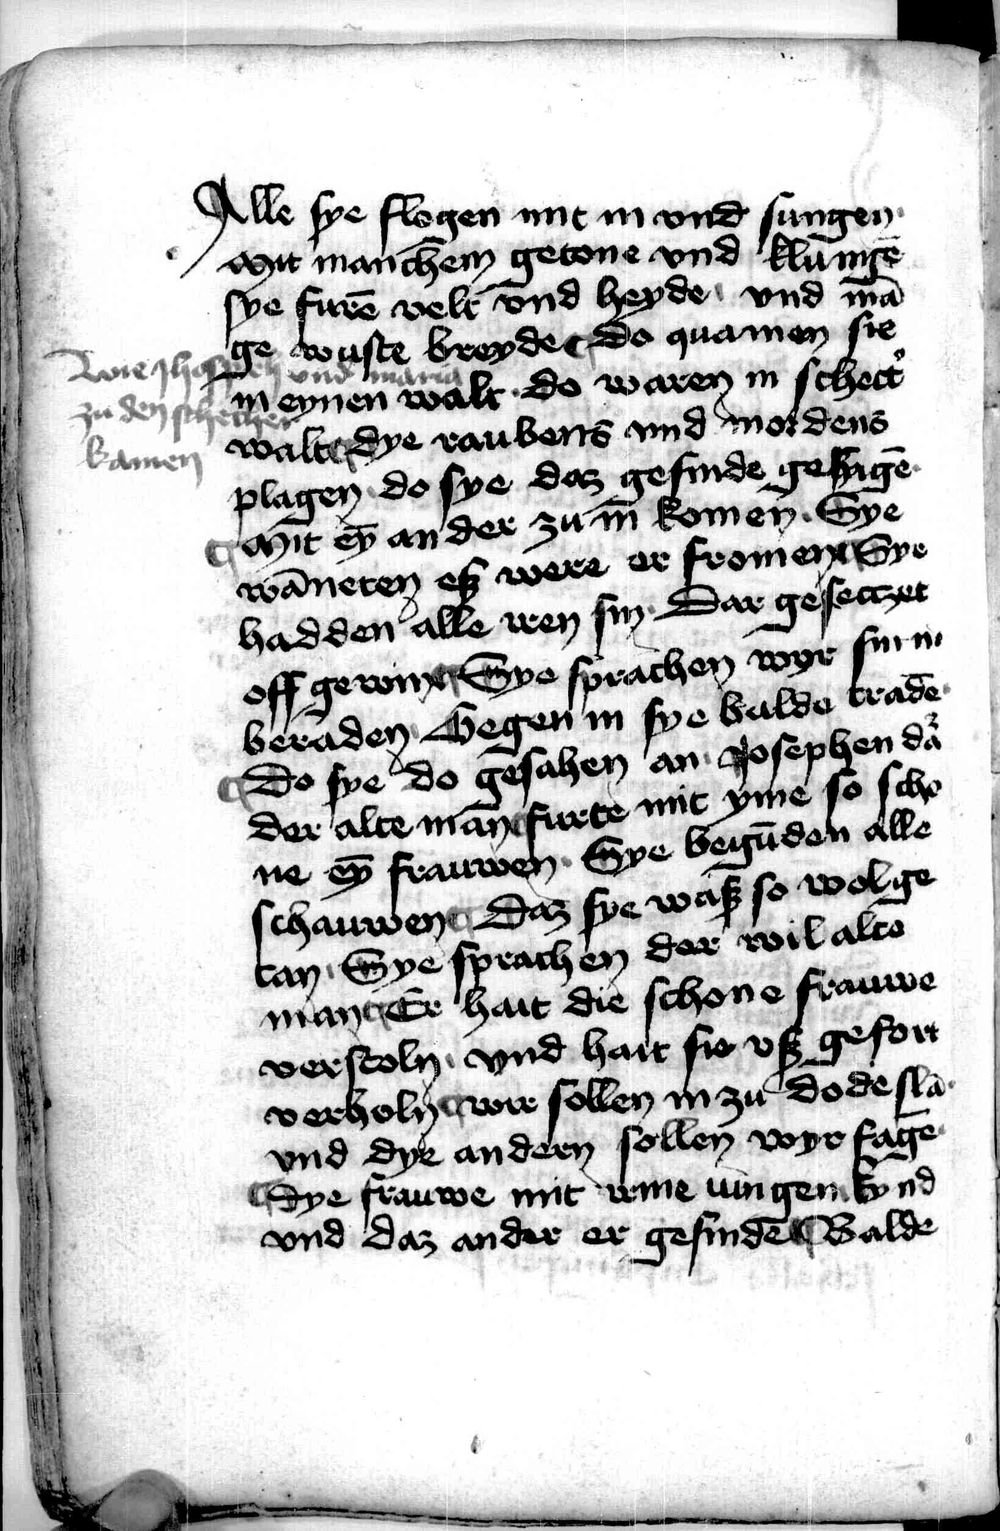 Alle sye flogen mit in vnd sungen·
Mit manchem̄ getone vnd klūnigē
sye furē velt vnd heyde· vnd mā
ge wuste breyde ¶ Do quamen sie
Wie Jhoseph vnd maria
zu den schecher
kamen
in eynen walt· do waren in schechꝰ
walt ¶ dye raubens vnd mordens
plagen· do sye daz gesinde gesagē·
¶ Mit eȳ ander zu in̄ komen· Sye
wāneten eß were er fromen ¶ Sye
hadden alle iren sin· Dar gesetzet
off gewin ¶ Sye sprachen wyr sin in
beraden· Gegen in sye balde tradē·
¶ Do sye do gesahen an· Josephen dā
der alte mān ¶ furte mit yme so scho
ne eȳ frauwen· Sye begūden alle
schauwen ¶ Daz sye waß so wol ge
tan· Sye sprachen der wil alte
man ¶ Er hait die schone frauwe
verstoln· vnd hait sie vß gefort
verholn ¶ wir sollen in zu dode slā·
vnd dye andern sollen wyr fagē·
¶ Dye frauwe mit irme iungen kynd
vnd daz ander er gesindē ¶ Balde